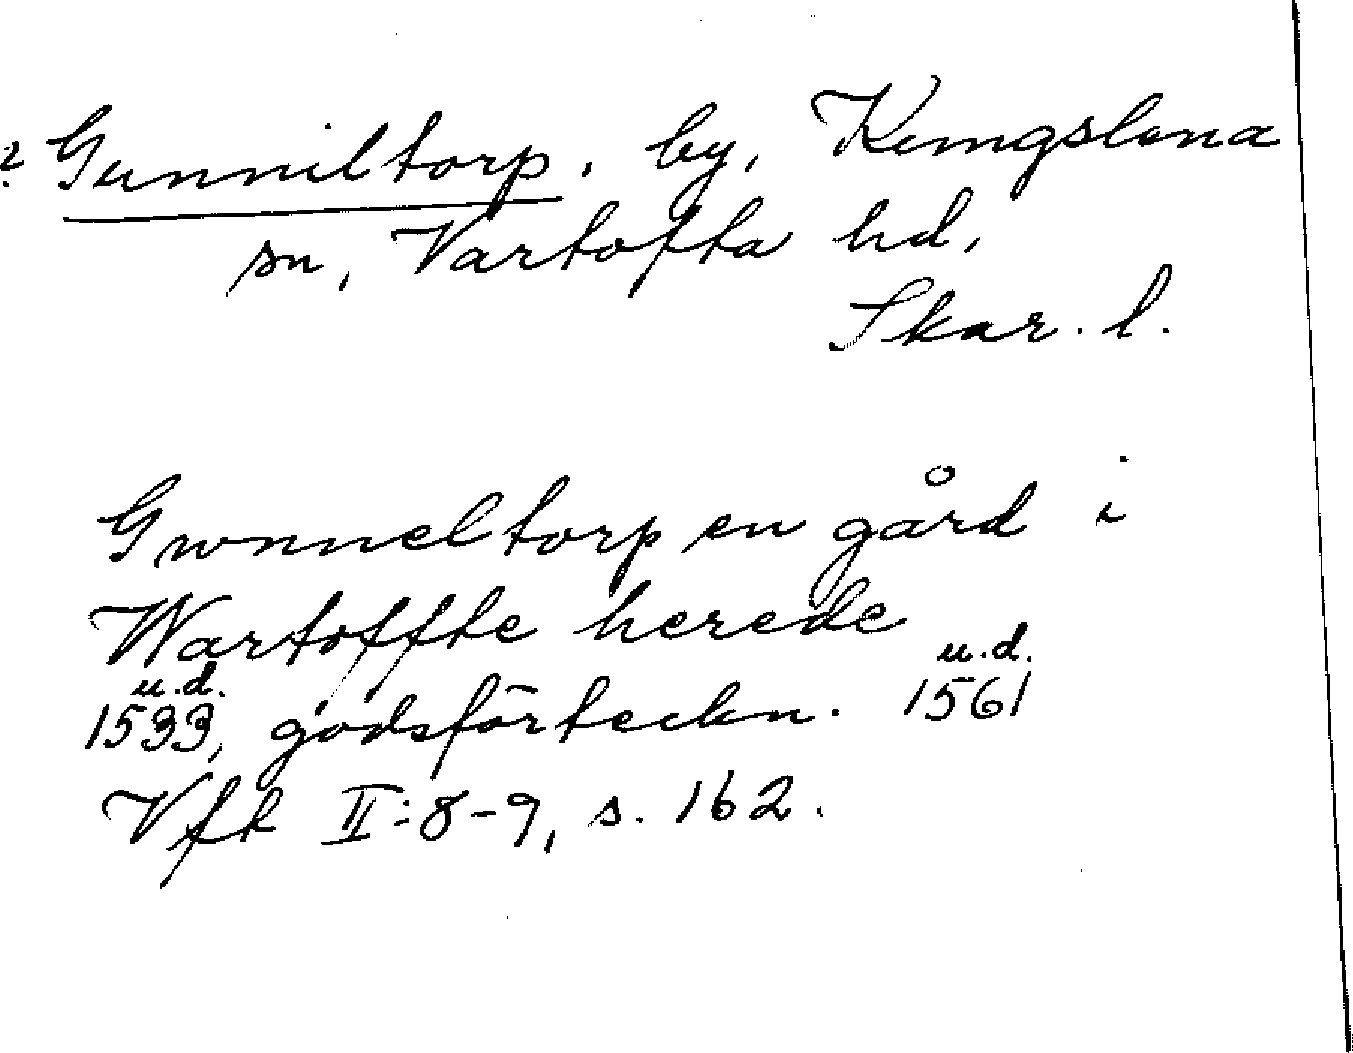 ? Gunniltorp, by, Kymgslena
sn, Vartofta hd,
Skar. l.
Gwnneltorp en gård i
Wartoffte herede
u.d. u.d.
1533, godsförteckn. 1561
Vfk II:8-9, s. 162.